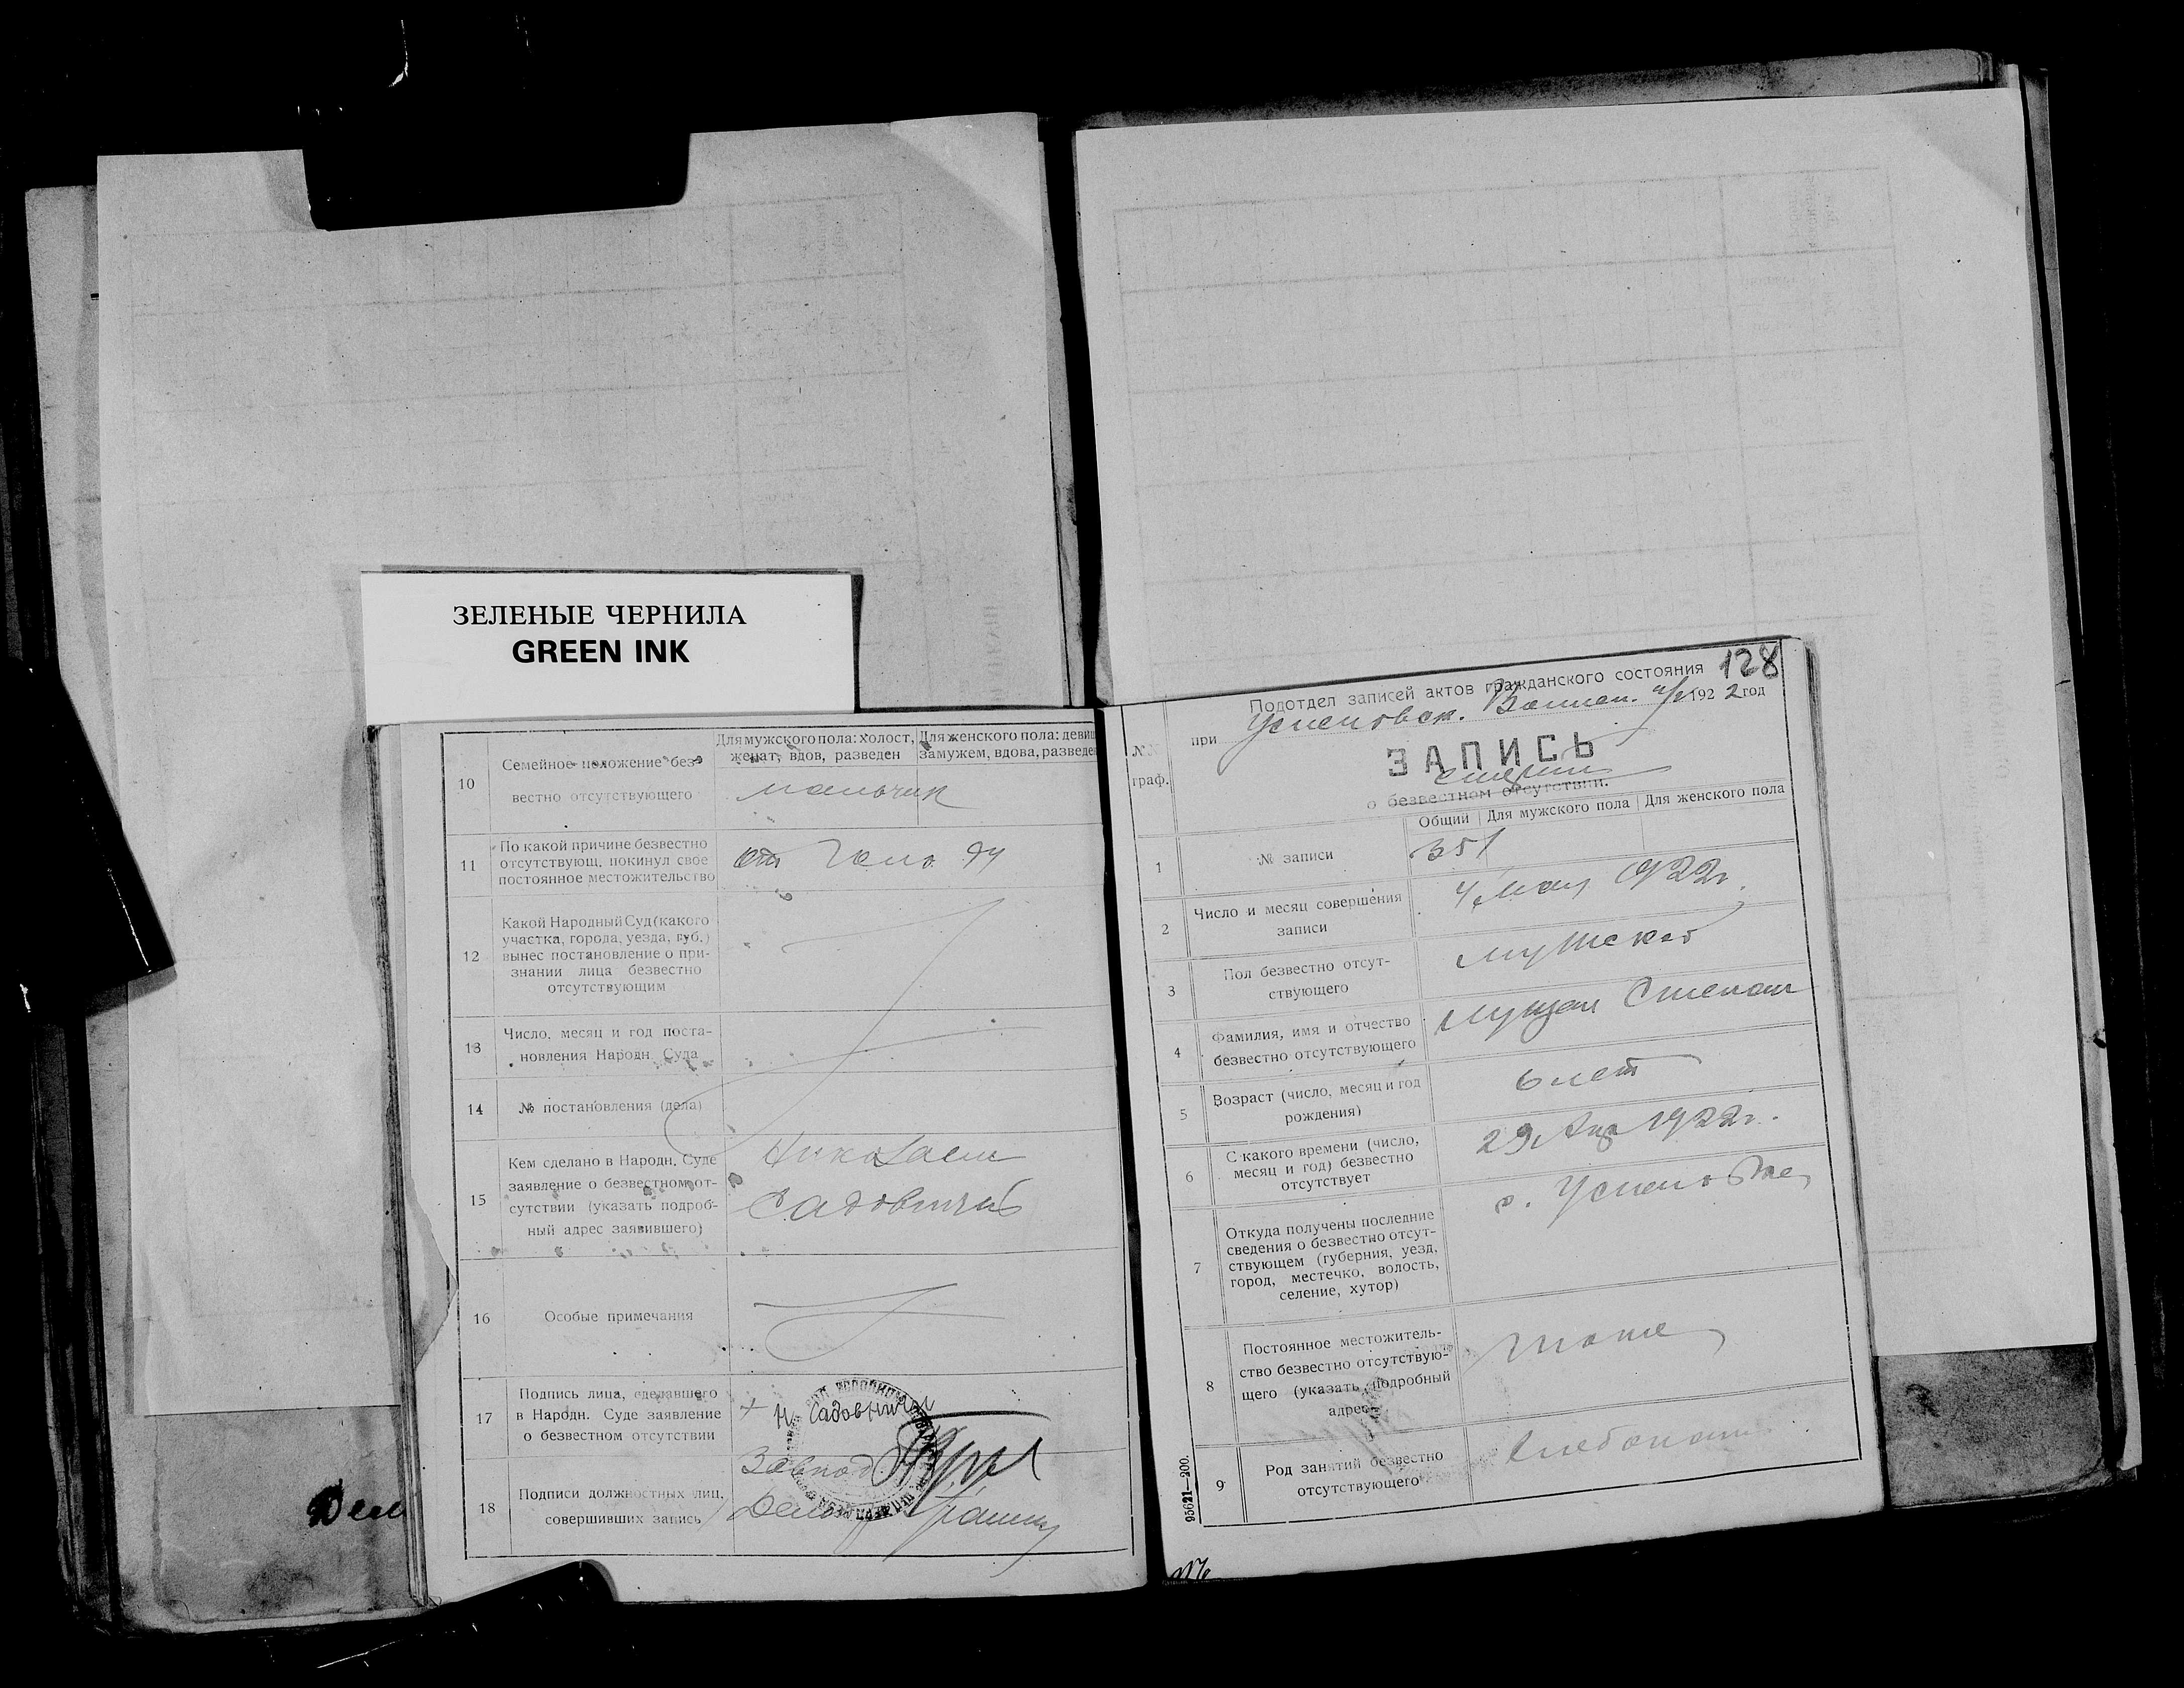 ЗЕЛЕНЫЕ ЧЕРНИЛА
GREEN INK
10
Семейное положение без-
вестно отсутствующего
Для мужского пола: холост,
женат, вдов, разведен
Для женского пола: девиц
замужем, вдова, разведе
мальчик
11
По какой причине безвестно
отсутствующ. покинул свое
постоянное местожительство
от
12
Какой Народный Суд (какого
участка, города, уезда, губ.)
вынес постановление о при-
знании лица безвестно
отсутствующим
13
Число, месяц и год поста-
новления Народн. Суда
14
№ постановления (дела)
15
Кем сделано в Народн. Суде
заявление о безвестном от-
сутствии (указать подроб-
ный адрес заявившего)
Николаем
Садовничий
16
Особые примечания
17
Подпись лица, сделавшего
в Народн. Суде заявление
о безвестном отсутствии
+ Н Садовничи
18
Подписи должностных лиц,
совершивших запись
Завпод
Дело
128
Подотдел записей актов гражданского состояния
при Успеновск. Волисп. 1922 год
ЗАПИСЬ
смерти
о безвестном отсутствии.
№№
граф.
Общий
Для мужского пола
Для женского пола
1
№ записи
351
2
Число и месяц совершения
записи
4 мая 1922г.
3
Пол безвестно отсут-
ствующего
мужской
4
Фамилия, имя и отчество
безвестно отсутствующего
Степан
5
Возраст (число, месяц и год
рождения)
6 лет
6
С какого времени (число,
месяц и год) безвестно
отсутствует
29 Апр 1922г.
7
Откуда получены последние
сведения о безвестно отсут-
ствующем (губерния, уезд,
город, местечко, волость,
селение, хутор)
с. Успеновке
8
Постоянное местожитель-
ство безвестно отсутствую-
щего (указать подробный
адрес)
тоже
9
Род занятий безвестно
отсутствующего
хлебопаш
95621—200.